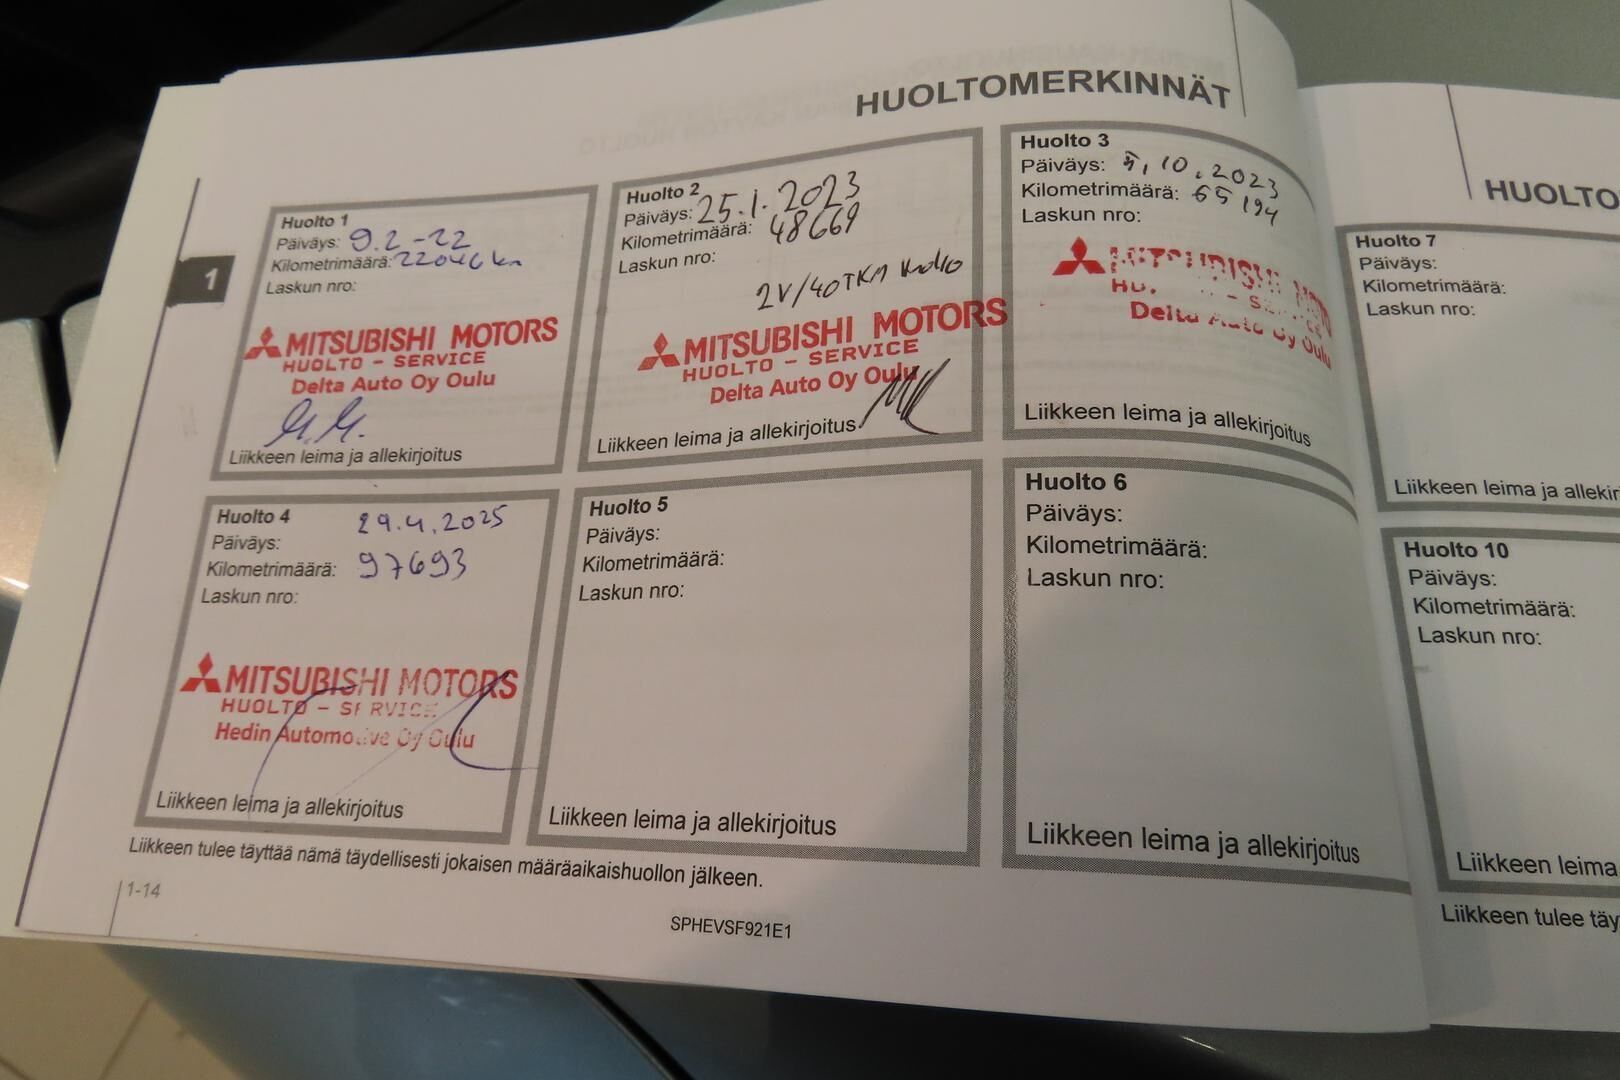 HUOLTOMERKINNÄT
1
Huolto 1
Päiväys: 9.2-22
Kilometrimäärä: 22046 km
Laskun nro:
MITSUBISHI MOTORS
HUOLTO - SERVICE
Delta Auto Oy Oulu
Liikkeen leima ja allekirjoitus
Huolto 2
Päiväys: 25.1.2023
Kilometrimäärä: 48669
Laskun nro:
2V/40TKM
MITSUBISHI MOTORS
HUOLTO - SERVICE
Delta Auto Oy Oulu
Liikkeen leima ja allekirjoitus
Huolto 3
Päiväys: 5.10.2023
Kilometrimäärä: 65194
Laskun nro:
MITSUBISHI MOTORS
Delta Auto Oy Oulu
Liikkeen leima ja allekirjoitus
Huolto 4
29.4.2025
Päiväys:
Kilometrimäärä: 97693
Laskun nro:
MITSUBISHI MOTORS
HUOLTO - SERVICE
Hedin Automotive Oy Oulu
Liikkeen leima ja allekirjoitus
Huolto 5
Päiväys:
Kilometrimäärä:
Laskun nro:
Liikkeen leima ja allekirjoitus
Huolto 6
Päiväys:
Kilometrimäärä:
Laskun nro:
Liikkeen leima ja allekirjoitus
Liikkeen tulee täyttää nämä täydellisesti jokaisen määräaikaishuollon jälkeen.
1-14
SPHEVSF921E1
HUOLTO
Huolto 7
Päiväys:
Kilometrimäärä:
Laskun nro:
Liikkeen leima ja allekir
Huolto 10
Päiväys:
Kilometrimäärä:
Laskun nro:
Liikkeen leima
Liikkeen tulee täy